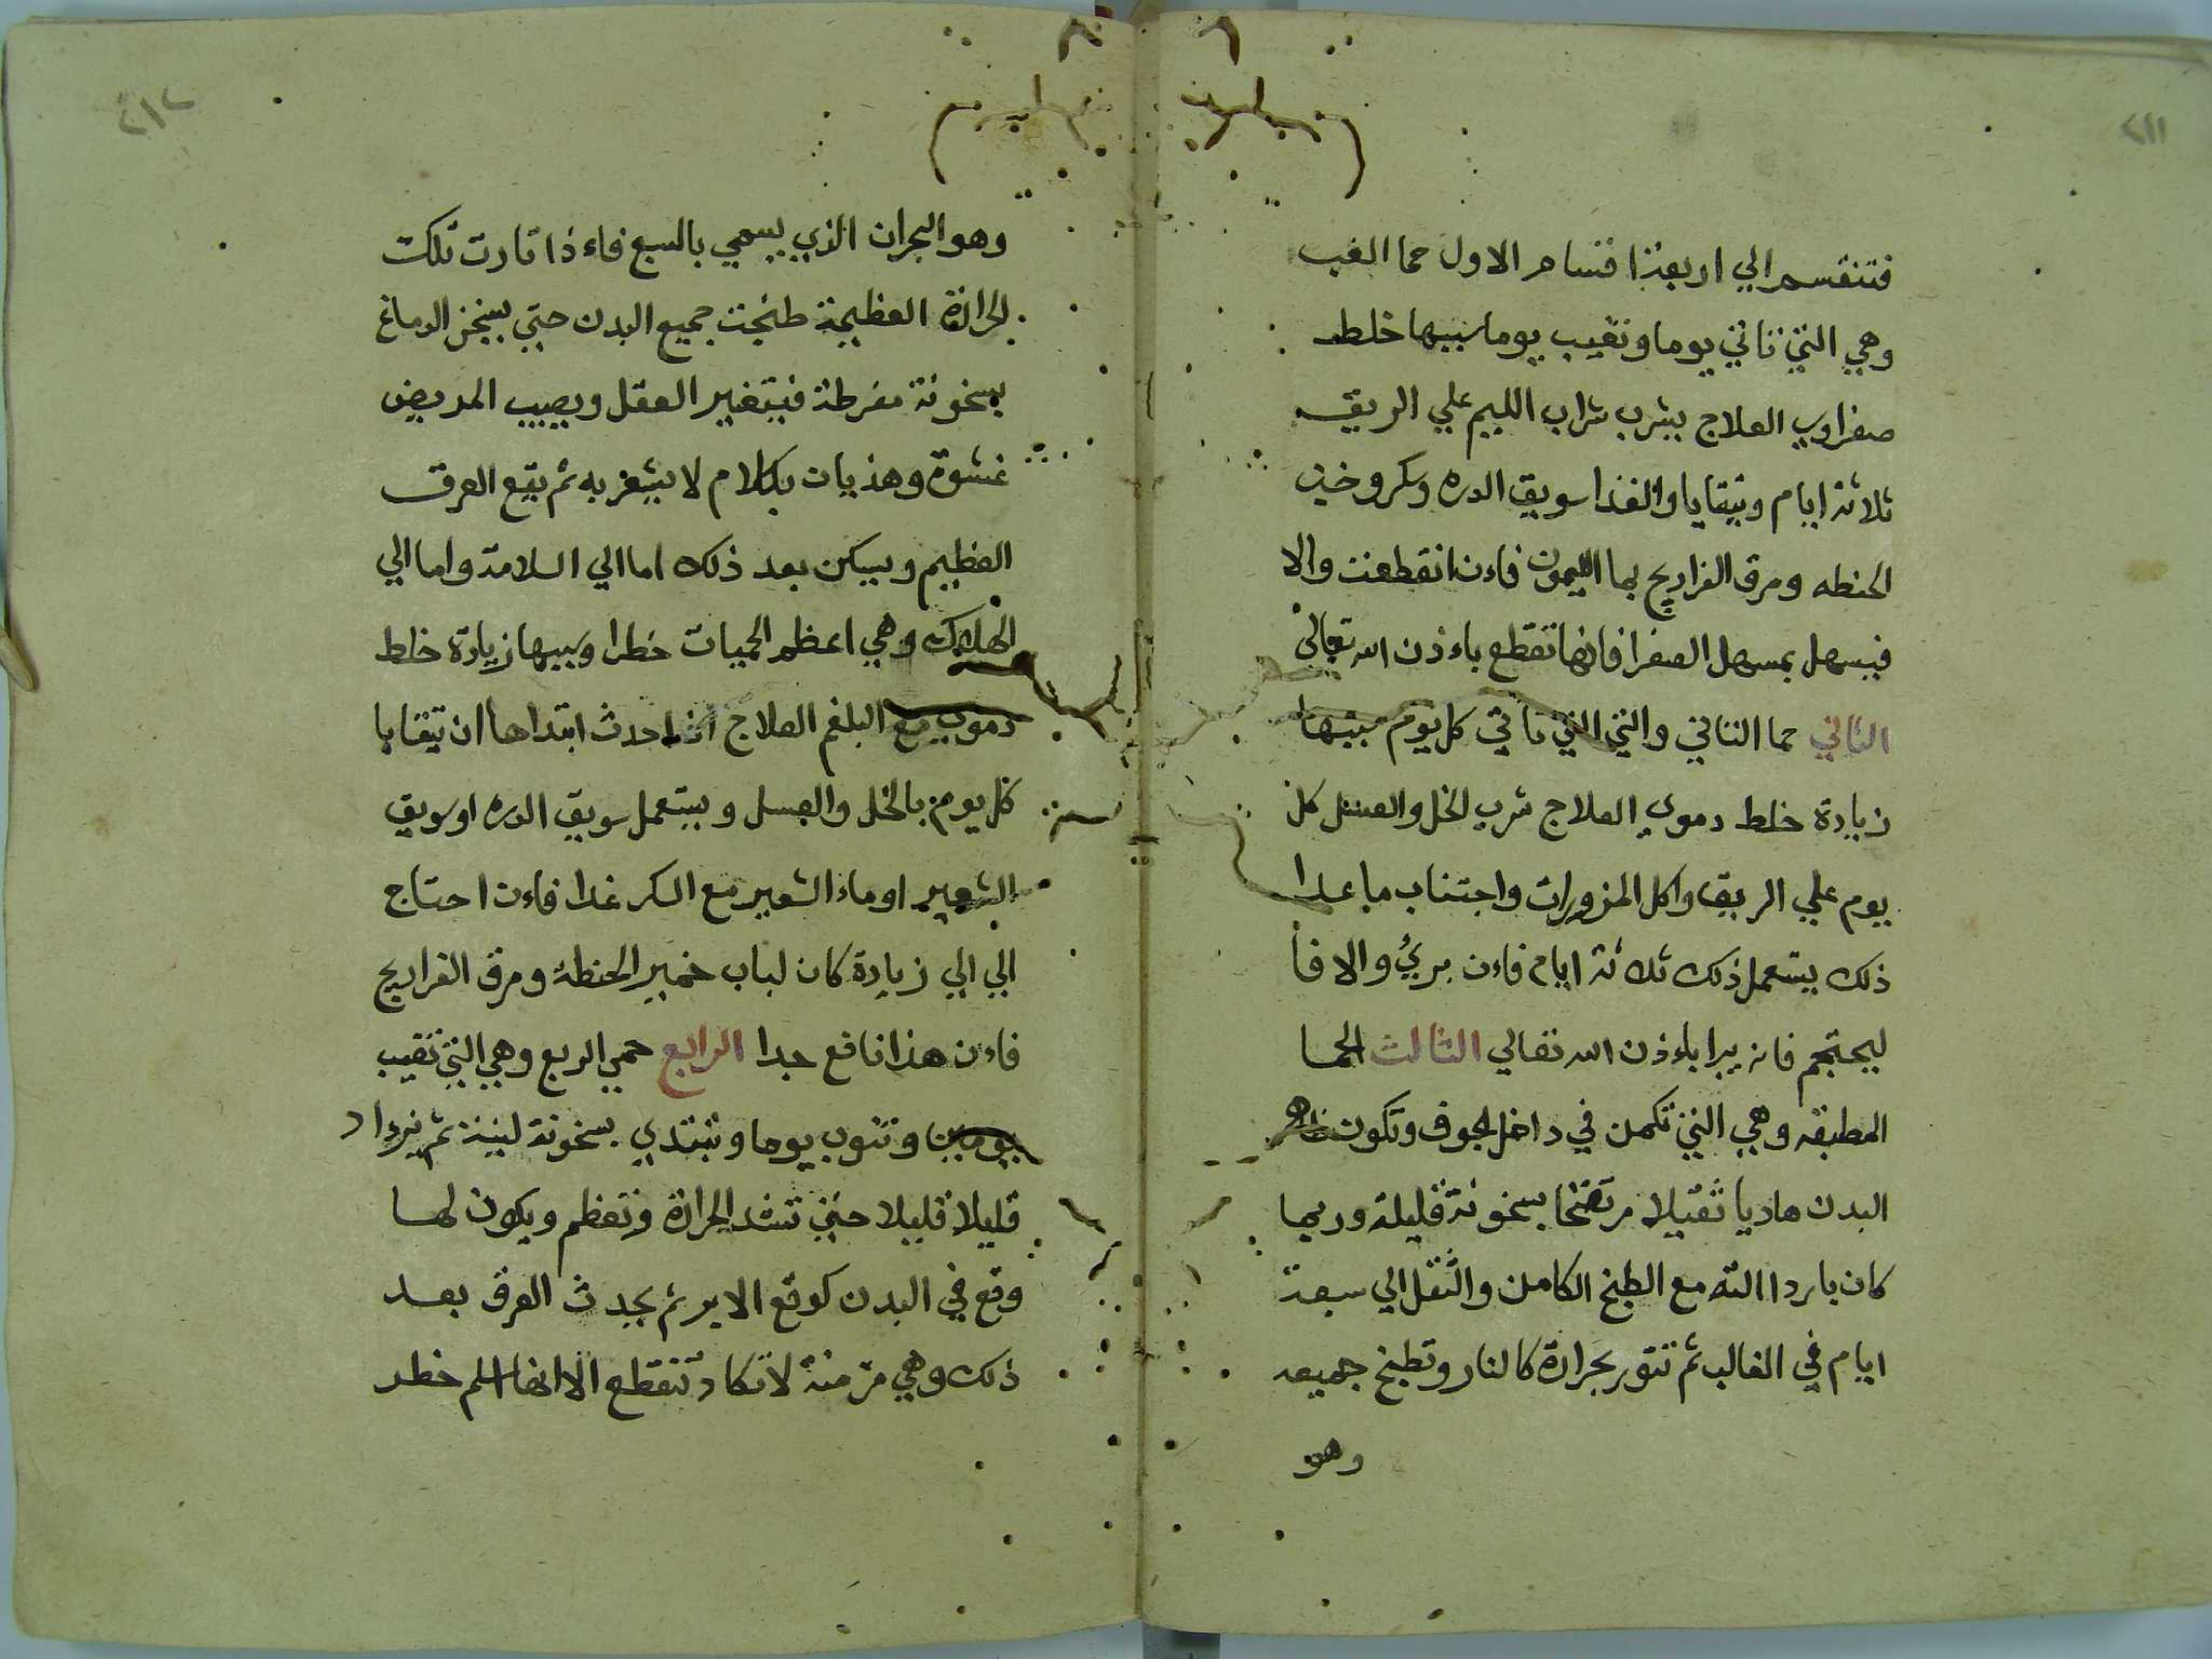 ٤١١
فتنقسم الي اربعة اقسام الاول حما الغب
وهي التي تاتي يوما وتغيب يوما سببها خلط
صفراوي العلاج يشرب شراب الليم علي الريق
ثلاثة ايام ويتقايا والغذا سويق الدره وسكر وخبز
الحنطه ومرق الفراريج بما الليمون فاءن انقطعت والا
فيسهل بمسهل الصفرا فانها تقطع باءذن الله تعالى
الثاني حما الثاني والتي التي تاتي كل يوم سببها
زيادة خلط دموي العلاج شرب الخل والعسل كل
يوم علي الريق واكل المزورات واجتناب ما عدا
ذلك يستعمل ذلك ثلاثة ايام فاءن بريُ والا فا
ليحتجم فانه يبرا باءذن الله تعالي الثالث الحما
المطبقه وهي التي تكمن في داخل الجوف وتكون ظاهر
البدن هاديا ثقيلا مرتضخا بسخونة قليلة وربما
كان باردا البته مع الطبخ الكامن والثقل الي سبعة
ايام في الغالب ثم تثور بحرارة كالنار وتطبخ جميعه
وهو
٤١٢
وهو البحران الذي يسمي بالسبع فاءذا ثارت تلكت
الحرارة العظيمة طبخت جميع البدن حتي يسخن الدماغ
بسخونة مفرطة فيتغير العقل ويصيب المريض
غشوة وهذيان بكلام لا يشعر به ثم يقع العرق
العظيم ويسكن بعد ذلك اما الي السلامة واما الي
الهلاك وهي اعظم الحميات خطرا وسببها زيادة خلط
دموي مع البلغم العلاج اذا حدث ابتداها ان يتقايا
كل يوم بالخل والعسل ويستعمل سويق الدره او سويق
الشعير او ماء الشعير مع السكر غدا فاءن احتاج
الي الي زيادة كان لباب خمير الحنطة ومرق الفراريج
فاءن هذا نافع جدا الرابع حمي الربع وهي التي تغيب
يومين وتنوب يوما وتبتدي بسخونة لينة ثم تزداد
قليلا قليلا حتي تشتد الحرارة وتعظم ويكون لها
وقع في البدن كوقع الابر ثم يحدث العرق بعد
ذلك وهي مزمنة لا تكاد تنقطع الا انها اسلم خطر